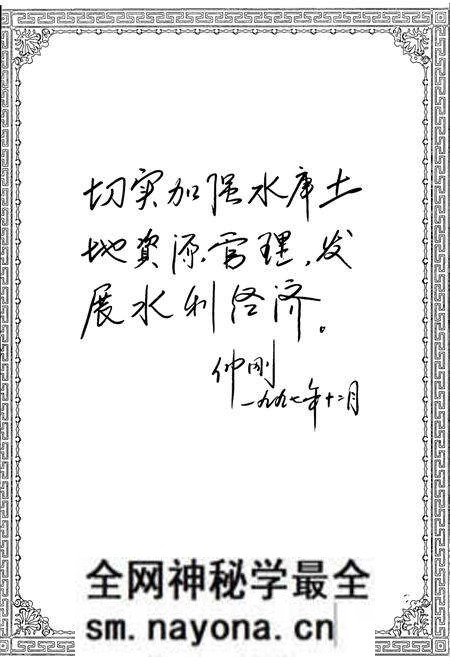 切实加强水库土
地資源管理,发
展水利经济。
仲刚
一九九七年十二月
全网神秘学最全
sm.nayona.cn